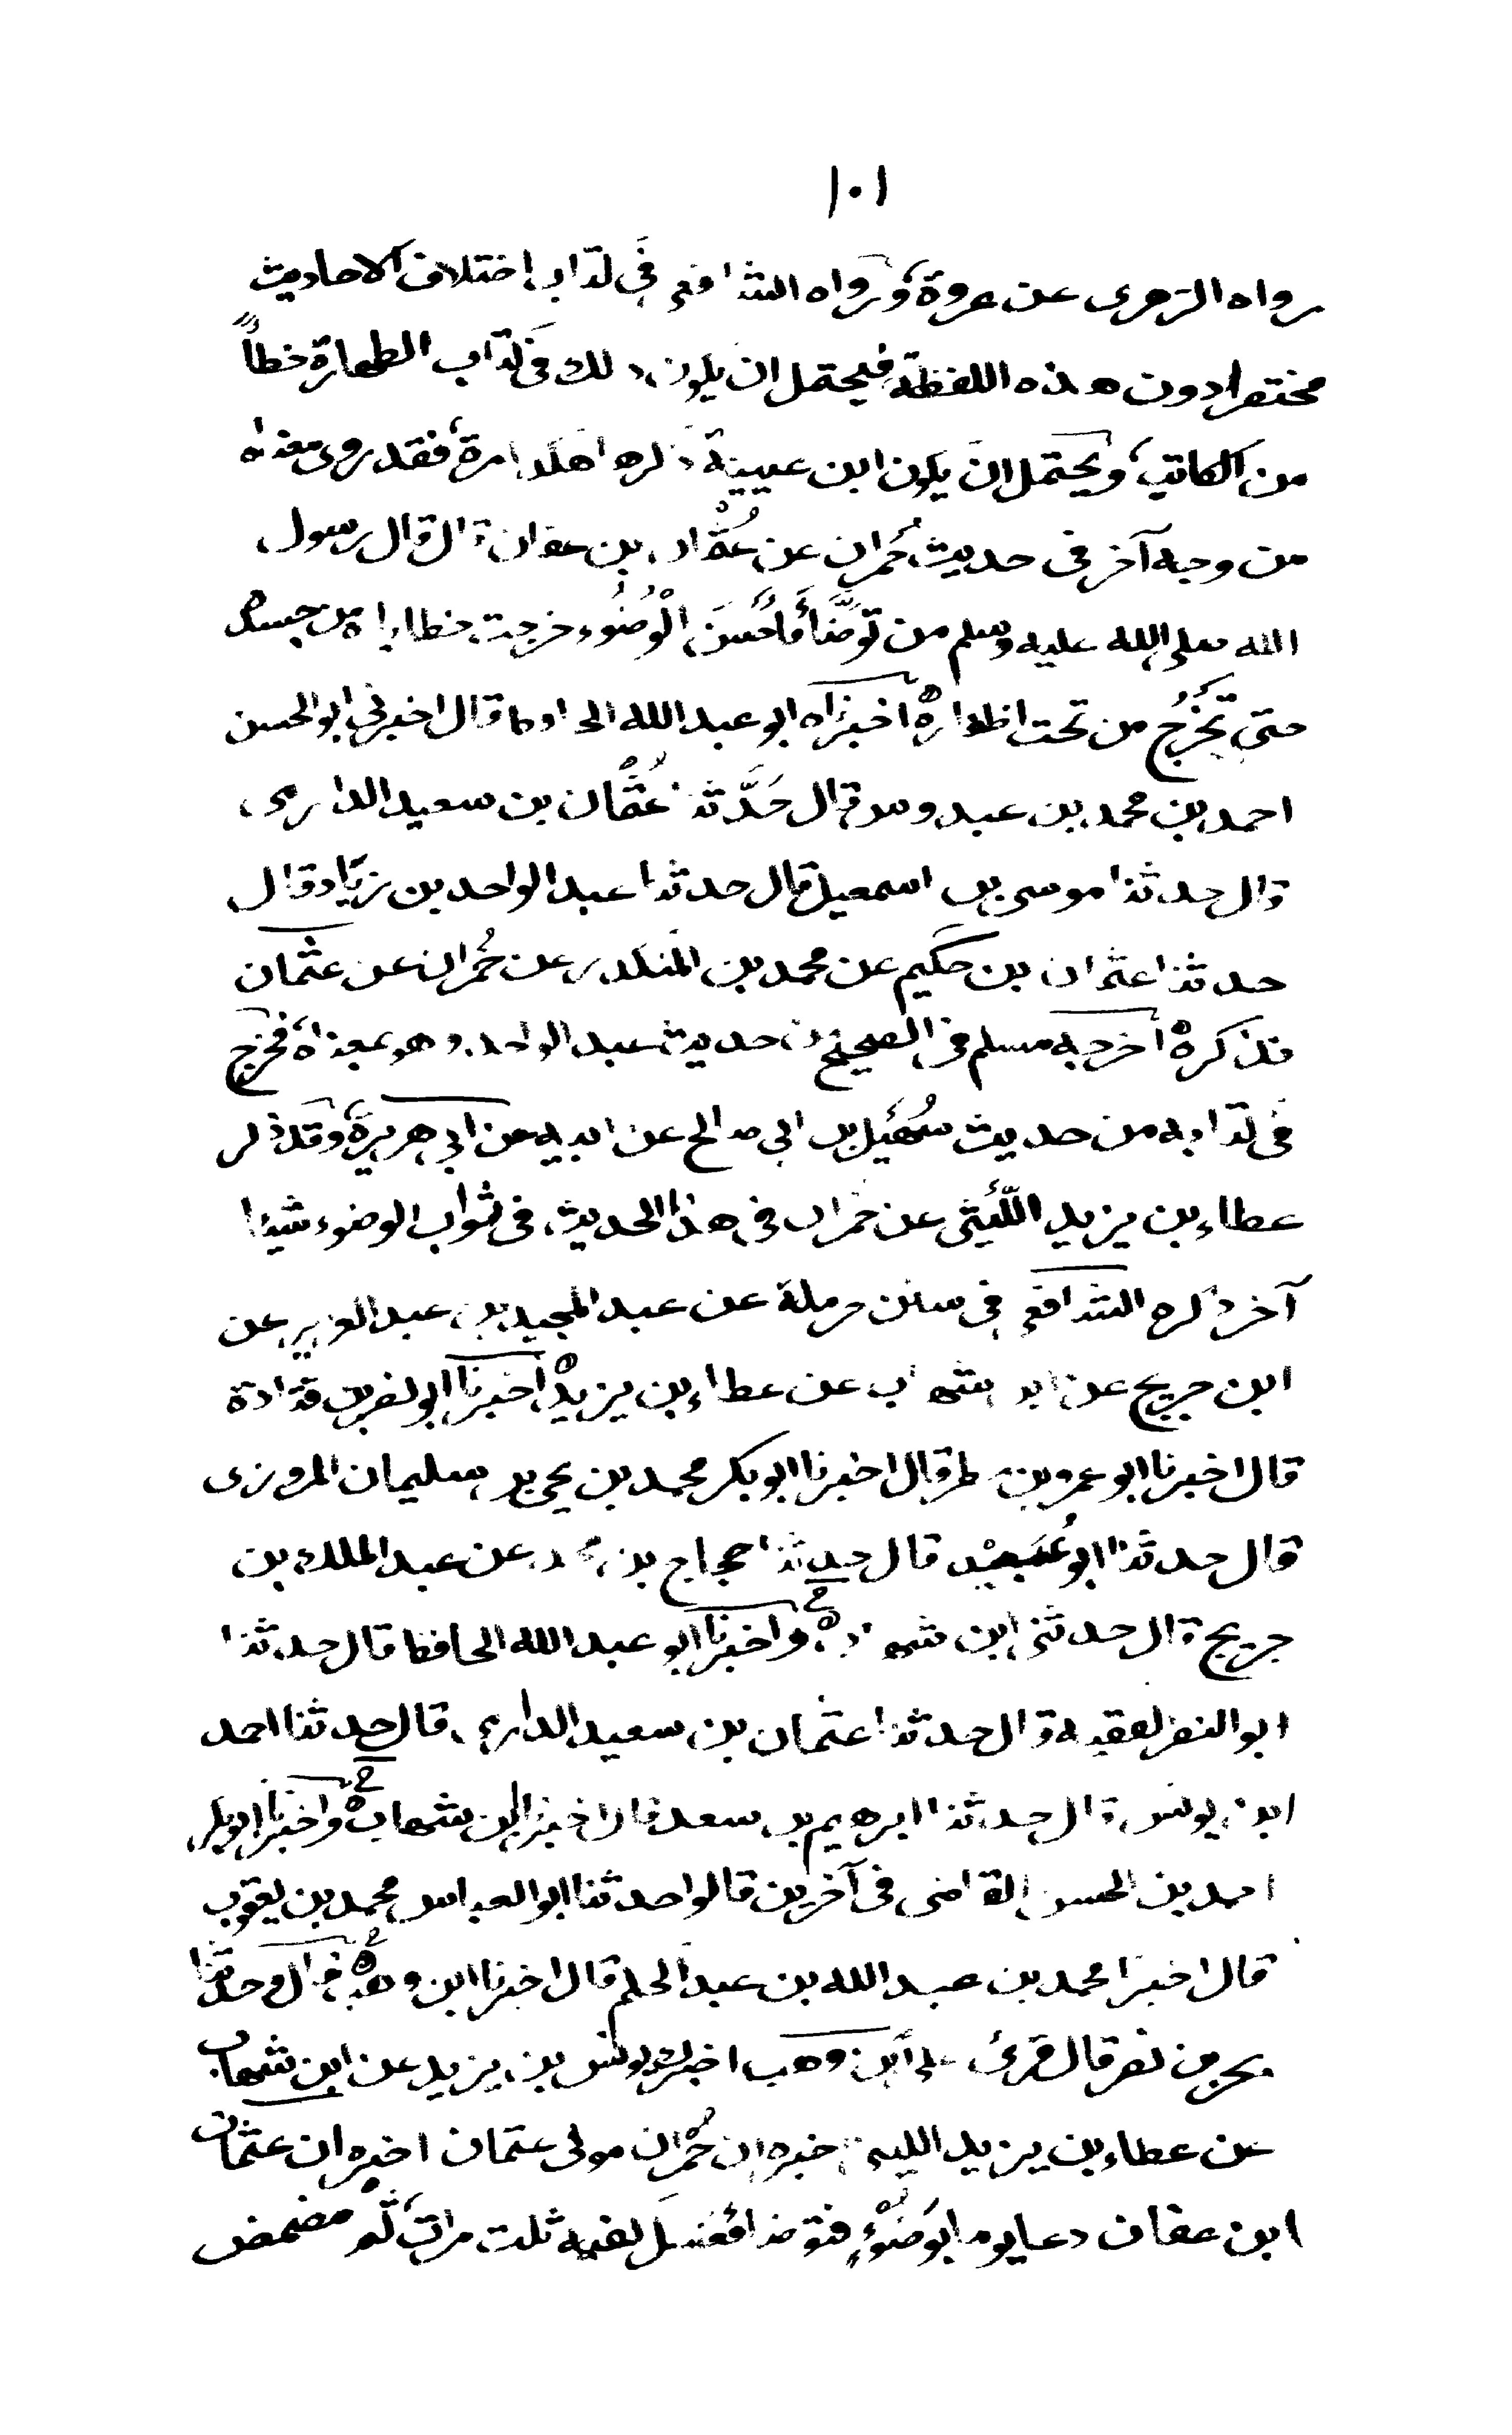 ١٠١
رواه الزهرى عن عروة، ورواه الشافعي في كتاب اختلاف الاحاديث
مختصرا دون هذه اللفظة فيحتمل ان يكون ذلك في كتاب الطهارة خطأً
من الكاتب، ويحتمل ان يكون ابن عيينة ذكره هكذا مرة، فقد روى معناه
من وجه آخر فى حديث حُمران عن عُثْمان بن عفان قال قال رسول
الله صلى الله عليه وسلم من تَوَضَّأ فَأَحْسَنَ الْوُضُوء خرجت خطاياه من جسده
حتى تَخْرُجُ من تحت اظفاره اخبرناه ابو عبد الله الحافظ قال اخبرني ابو الحسن
احمد بن محمد بن عبدوس قال حَدَّثنا عُثْمَان بن سعيد الدارمى
قال حدثنا موسى بن اسمعيل قال حدثنا عبد الواحد بن زيَاد قال
حدثنا عثمان بن حكَيم عن محمد بن المنكدر عن حُمران عن عثمان
فذكره اخرجه مسلم فى الصحيح من حديث عبد الواحد، وهو بمعناه مخرج
في كتابه من حديث سُهَيْل بن ابى صالح عن ابيه عن ابي هريرة، وقد ذكر
عطاء بن يزيد اللَّيْثى عن حمران في هذا الحديث فى ثواب الوضوء شيئا
آخر ذكره الشافعي في سنن حرملة عن عبد المجيد بن عبد العزيز عن
ابن جريج عن ابن شهاب عن عطاء بن يزيد اخبرنا ابو نصر بن قتادة
قال اخبرنا ابو عمرو بن مطر قال اخبرنا ابو بكر محمد بن يحيى بن سليمان المروزى
قال حدثنا ابو عُبَيْد قال حدثنا حجاج بن محمد عن عبد الملك بن
جريج قال حدثنى ابن شهاب ح واخبرنا ابو عبد الله الحافظ قال حدثنا
ابو النضر الفقيه قال حدثنا عثمان بن سعيد الدارمي قال حدثنا احمد
ابن يونس قال حدثنا ابرهيم بن سعد قال اخبرنا ابن شهاب ح واخبرنا ابو بكر
احمد بن الحسن القاضى فى آخرين قالوا حدثنا ابو العباس محمد بن يعقوب
قال اخبرنا محمد بن عبد الله بن عبد الحكم قال اخبرنا ابن وهب ح قال وحدثنا
بحر بن نصر قال قرئ على ابن وهب اخبرك يونس بن يزيد عن ابن شهاب
عن عطاء بن يزيد الليثي اخبره ان حُمْران مولى عثمان اخبره ان عثمان
ابن عفان دعا يوما بوَضُوْءٍ فتوضأ فغسل كفيه ثلث مرات، ثم مضمض